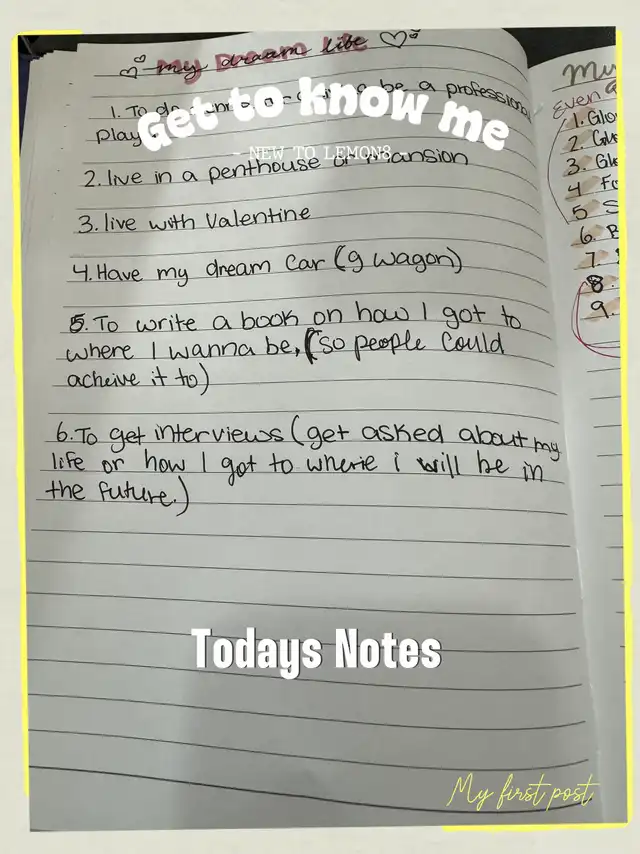 my dream life
1. To do
be a professional
play
Get to know me
NEW TO LEMON8
2. live in a penthouse or mansion
3. live with Valentine
4. Have my dream car (g wagon)
5. To write a book on how I got to
where I wanna be, (so people could
acheive it to)
6. To get interviews (get asked about my
life or how I got to where i will be in
the future.)
Todays Notes
My first post
Even
1. Glo
2.
3. Gl
4 Fo
5 S
6. B
7.
8.
9.